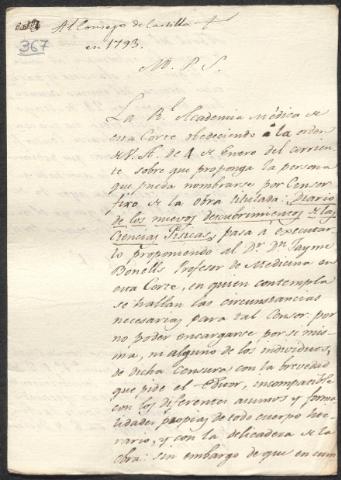 Al Consejo de Castilla
367
en 1793.
M. P. S.
La Rl. Academia Médica de
esta Corte obedeciendo á la orden
de V. A. de 4 de Enero del corrien
te sobre que proponga la persona
que pueda nombrarse por Censor
fixo de la obra titulada: Diario
de los nuevos descubrimientos de las
Ciencias Fisicas, pasa á executar
lo proponiendo al Dr. Dn. Jayme
Bonells Profesor de Medicina en
esta Corte, en quien contempla
se hallan las circunstancias
necesarias para tal Censor: por
no poder encargarse, por si mis
ma, ni alguno de los individuos,
de dicha Censura con la brevedad
que pide el Editor, incompatible
con los diferentes asuntos y forma
lidades propias de todo cuerpo lite
rario, y con la delicadeza de la
obra: sin embargo de que en cum